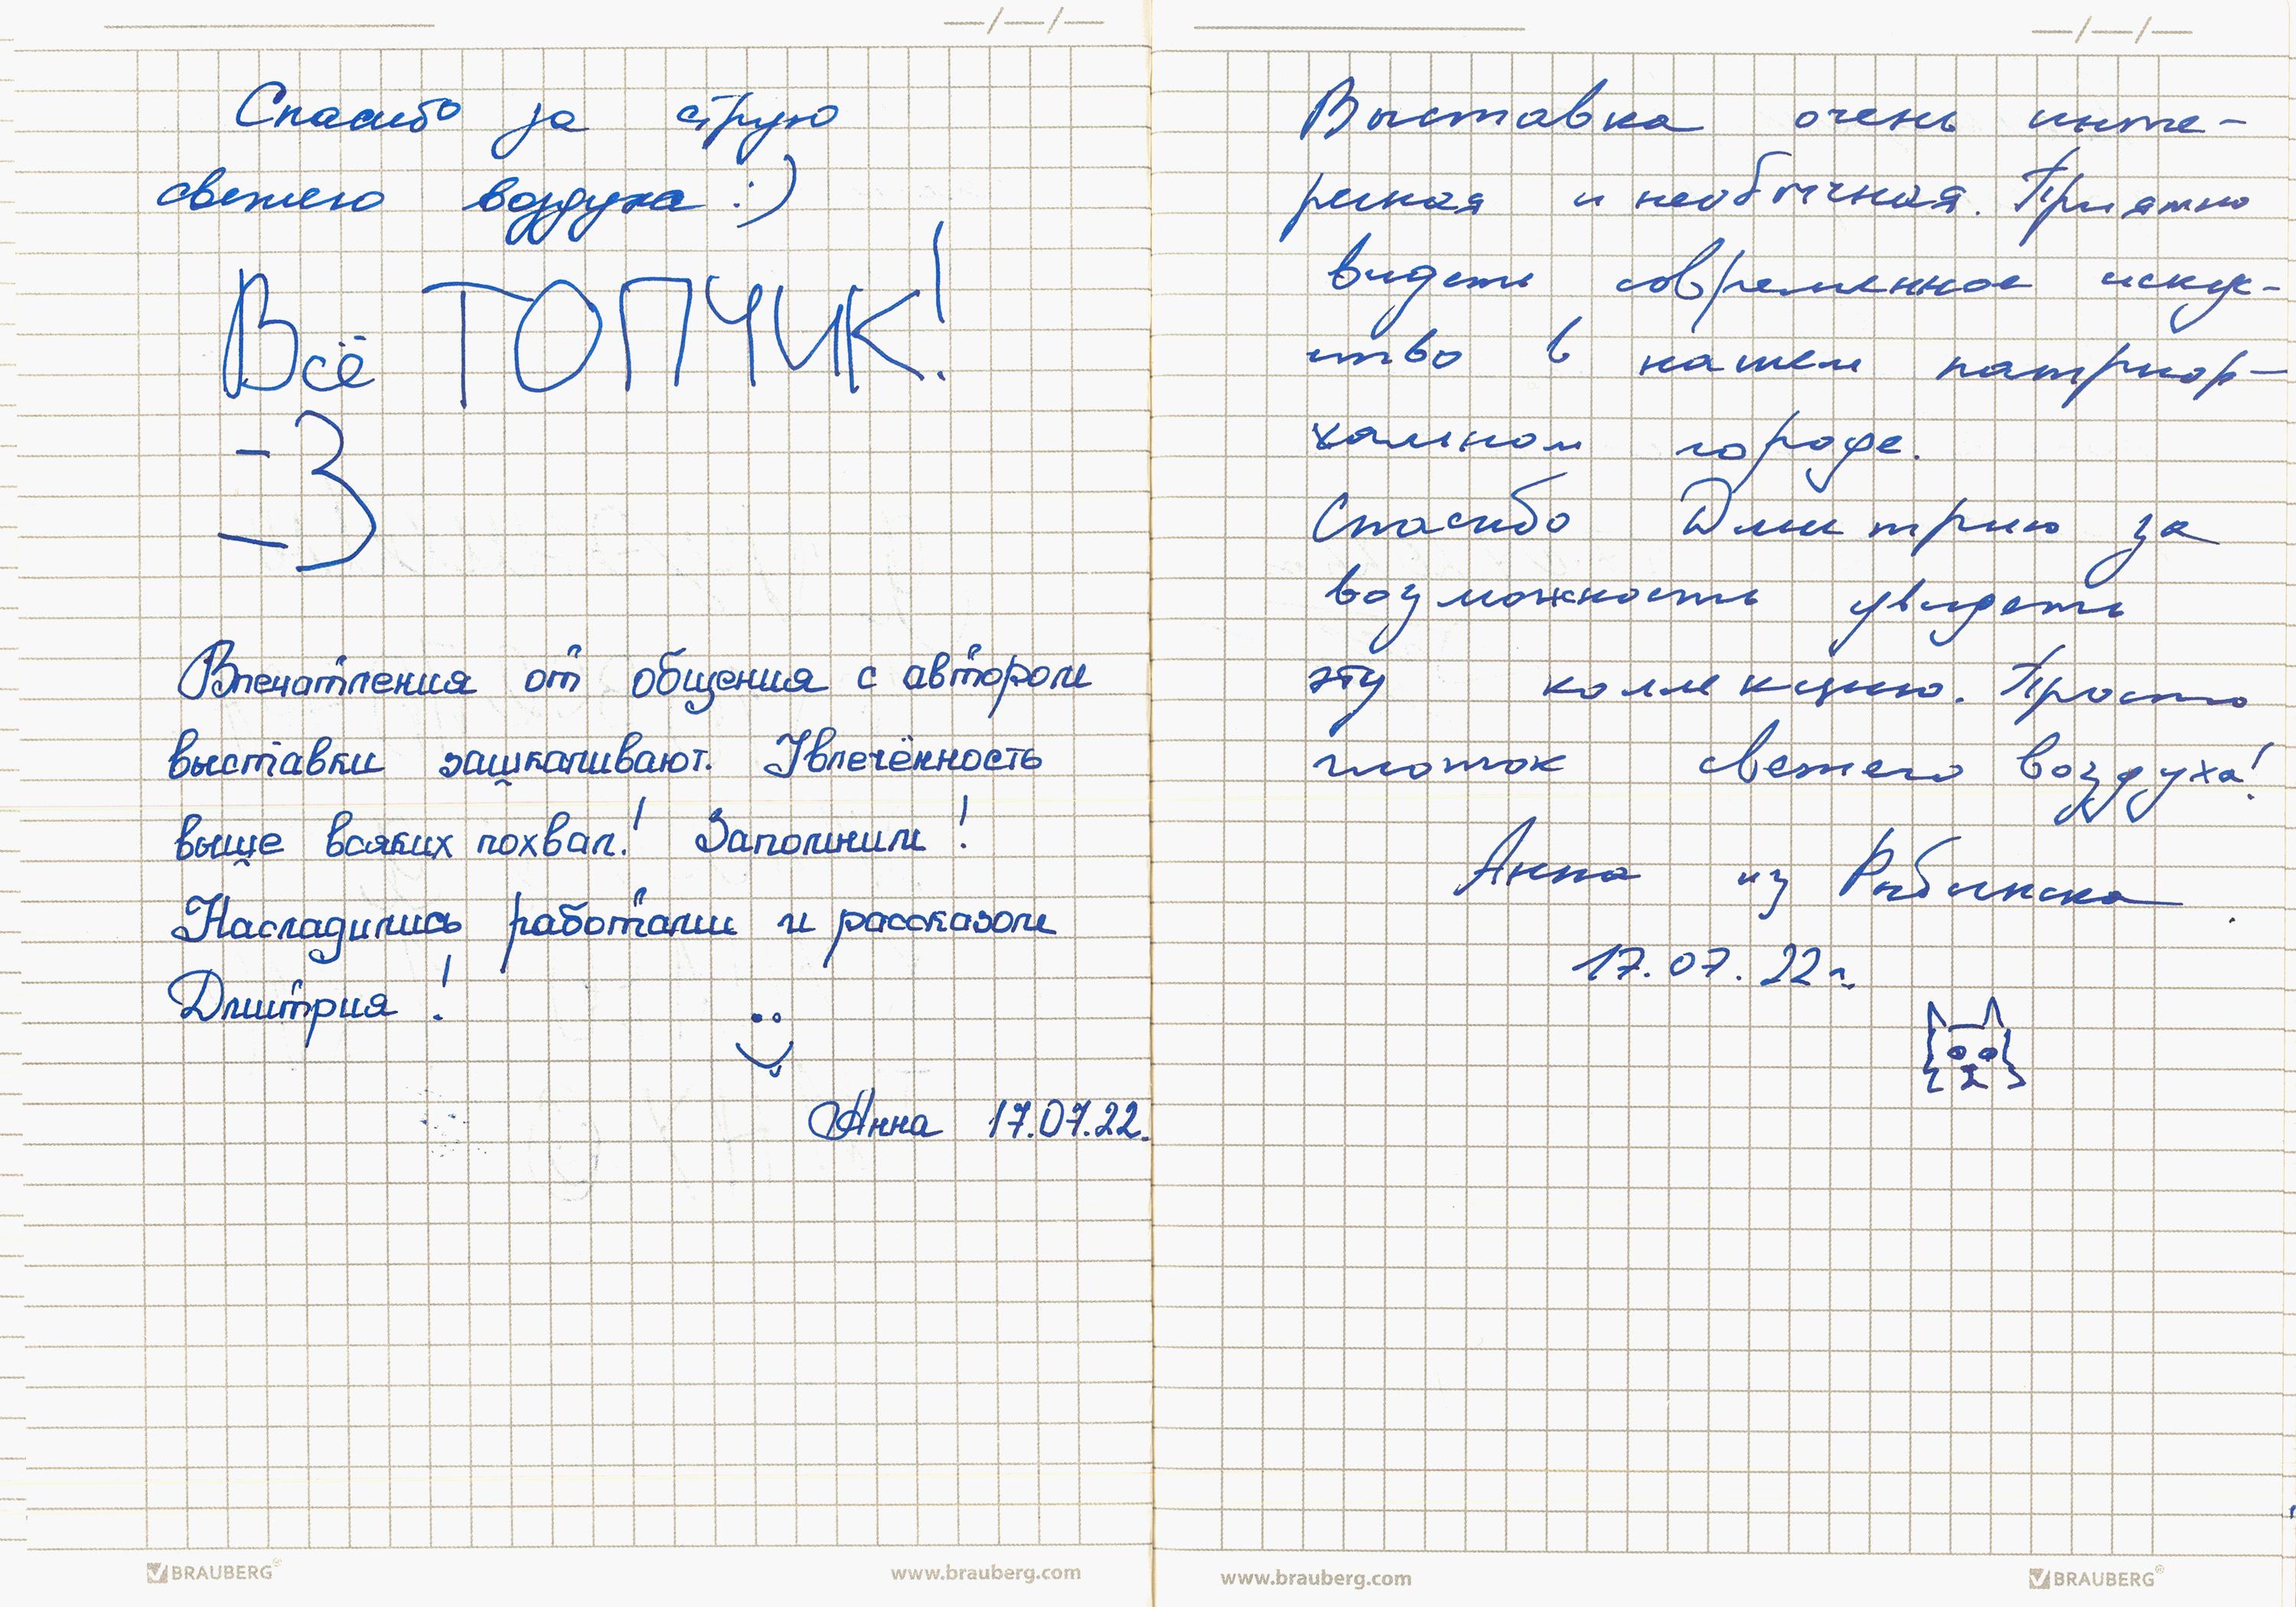 Спасибо за струю
свежего воздуха :)
Всё ТОПЧИК!
=3
Впечатления от общения с автором
выставки зашкаливают. Увлечённость
выше всяких похвал! Запомним!
Насладились работами и рассказом
Дмитрия!
Анна 17.07.22.
BRAUBERG®
www.brauberg.com
Выставка очень инте-
ресная и необычная. Приятно
видеть современное искус-
ство в нашем патриар-
хальном городе.
Спасибо Дмитрию за
возможность увидеть
эту коллекцию. Просто
глоток свежего воздуха!
Анна из Рыбинска.
17.07.22г.
www.brauberg.com
BRAUBERG®